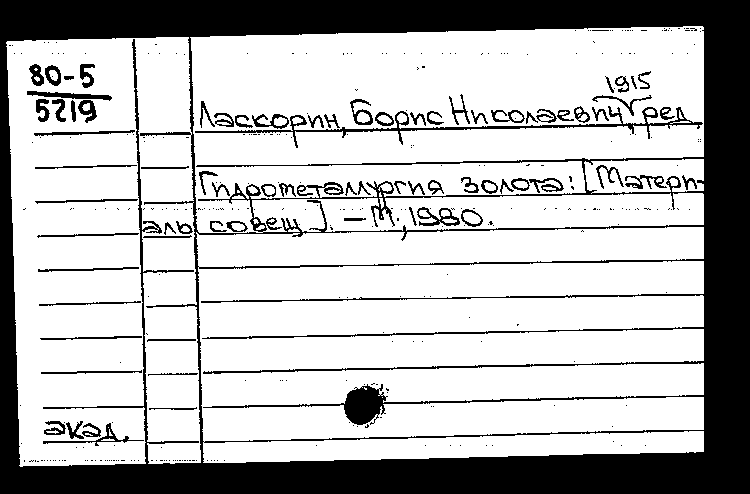 80-5
5219
1915
Ласкорин, Борис Николаевич, ред.
Гидрометаллургия золота: [Матери-
алы совещ]. – М., 1980.
акад.